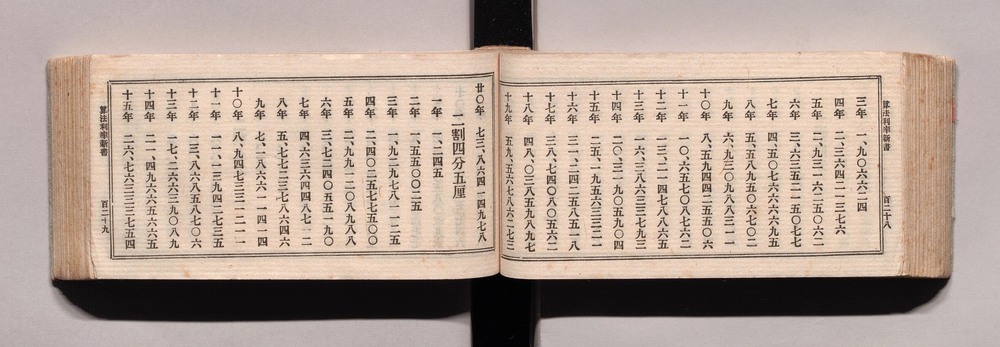 算法利率新書
百二十八
三年 一、九〇六六二四
四年 二、三六四二一三七六
五年 二、九三一六二五〇六二
六年 三、六三五二一五〇七七
七年 四、五〇七六六六六九五
八年 五、五八九五〇六七〇二
九年 六、九三〇九八八三一一
十〇年 八、五九四四二五五〇六
十一年 一〇、六五七〇八七六二
十二年 一三、二一四七八八六五
十三年 一六、三八六三三七九三
十四年 二〇、三一九〇五九〇四
十五年 二五、一九五六三三二一
十六年 三一、二四二五八五一八
十七年 三八、七四〇八〇五六二
十八年 四八、〇三八五九八九七
十九年 五九、五六七八六二七三
廿〇年 七三、八六四一四九七八
二割四分五厘
一年 一、二四五
二年 一、五五〇〇二五
三年 一、九二九七八一一二五
四年 二、四〇二五七七五〇〇
五年 二、九九一二〇八九八八
六年 三、七二四〇五五一九〇
七年 四、六三六四四八七一一
八年 五、七七二三七八六四六
九年 七、一八六六一一四一四
十〇年 八、九四七三三一二一一
十一年 一一、一三九四二七三五
十二年 一三、八六八五八七〇六
十三年 一七、二六六三九〇八九
十四年 二一、四九六六五六六五
十五年 二六、七六三三三七五四
算法利率新書
百二十九